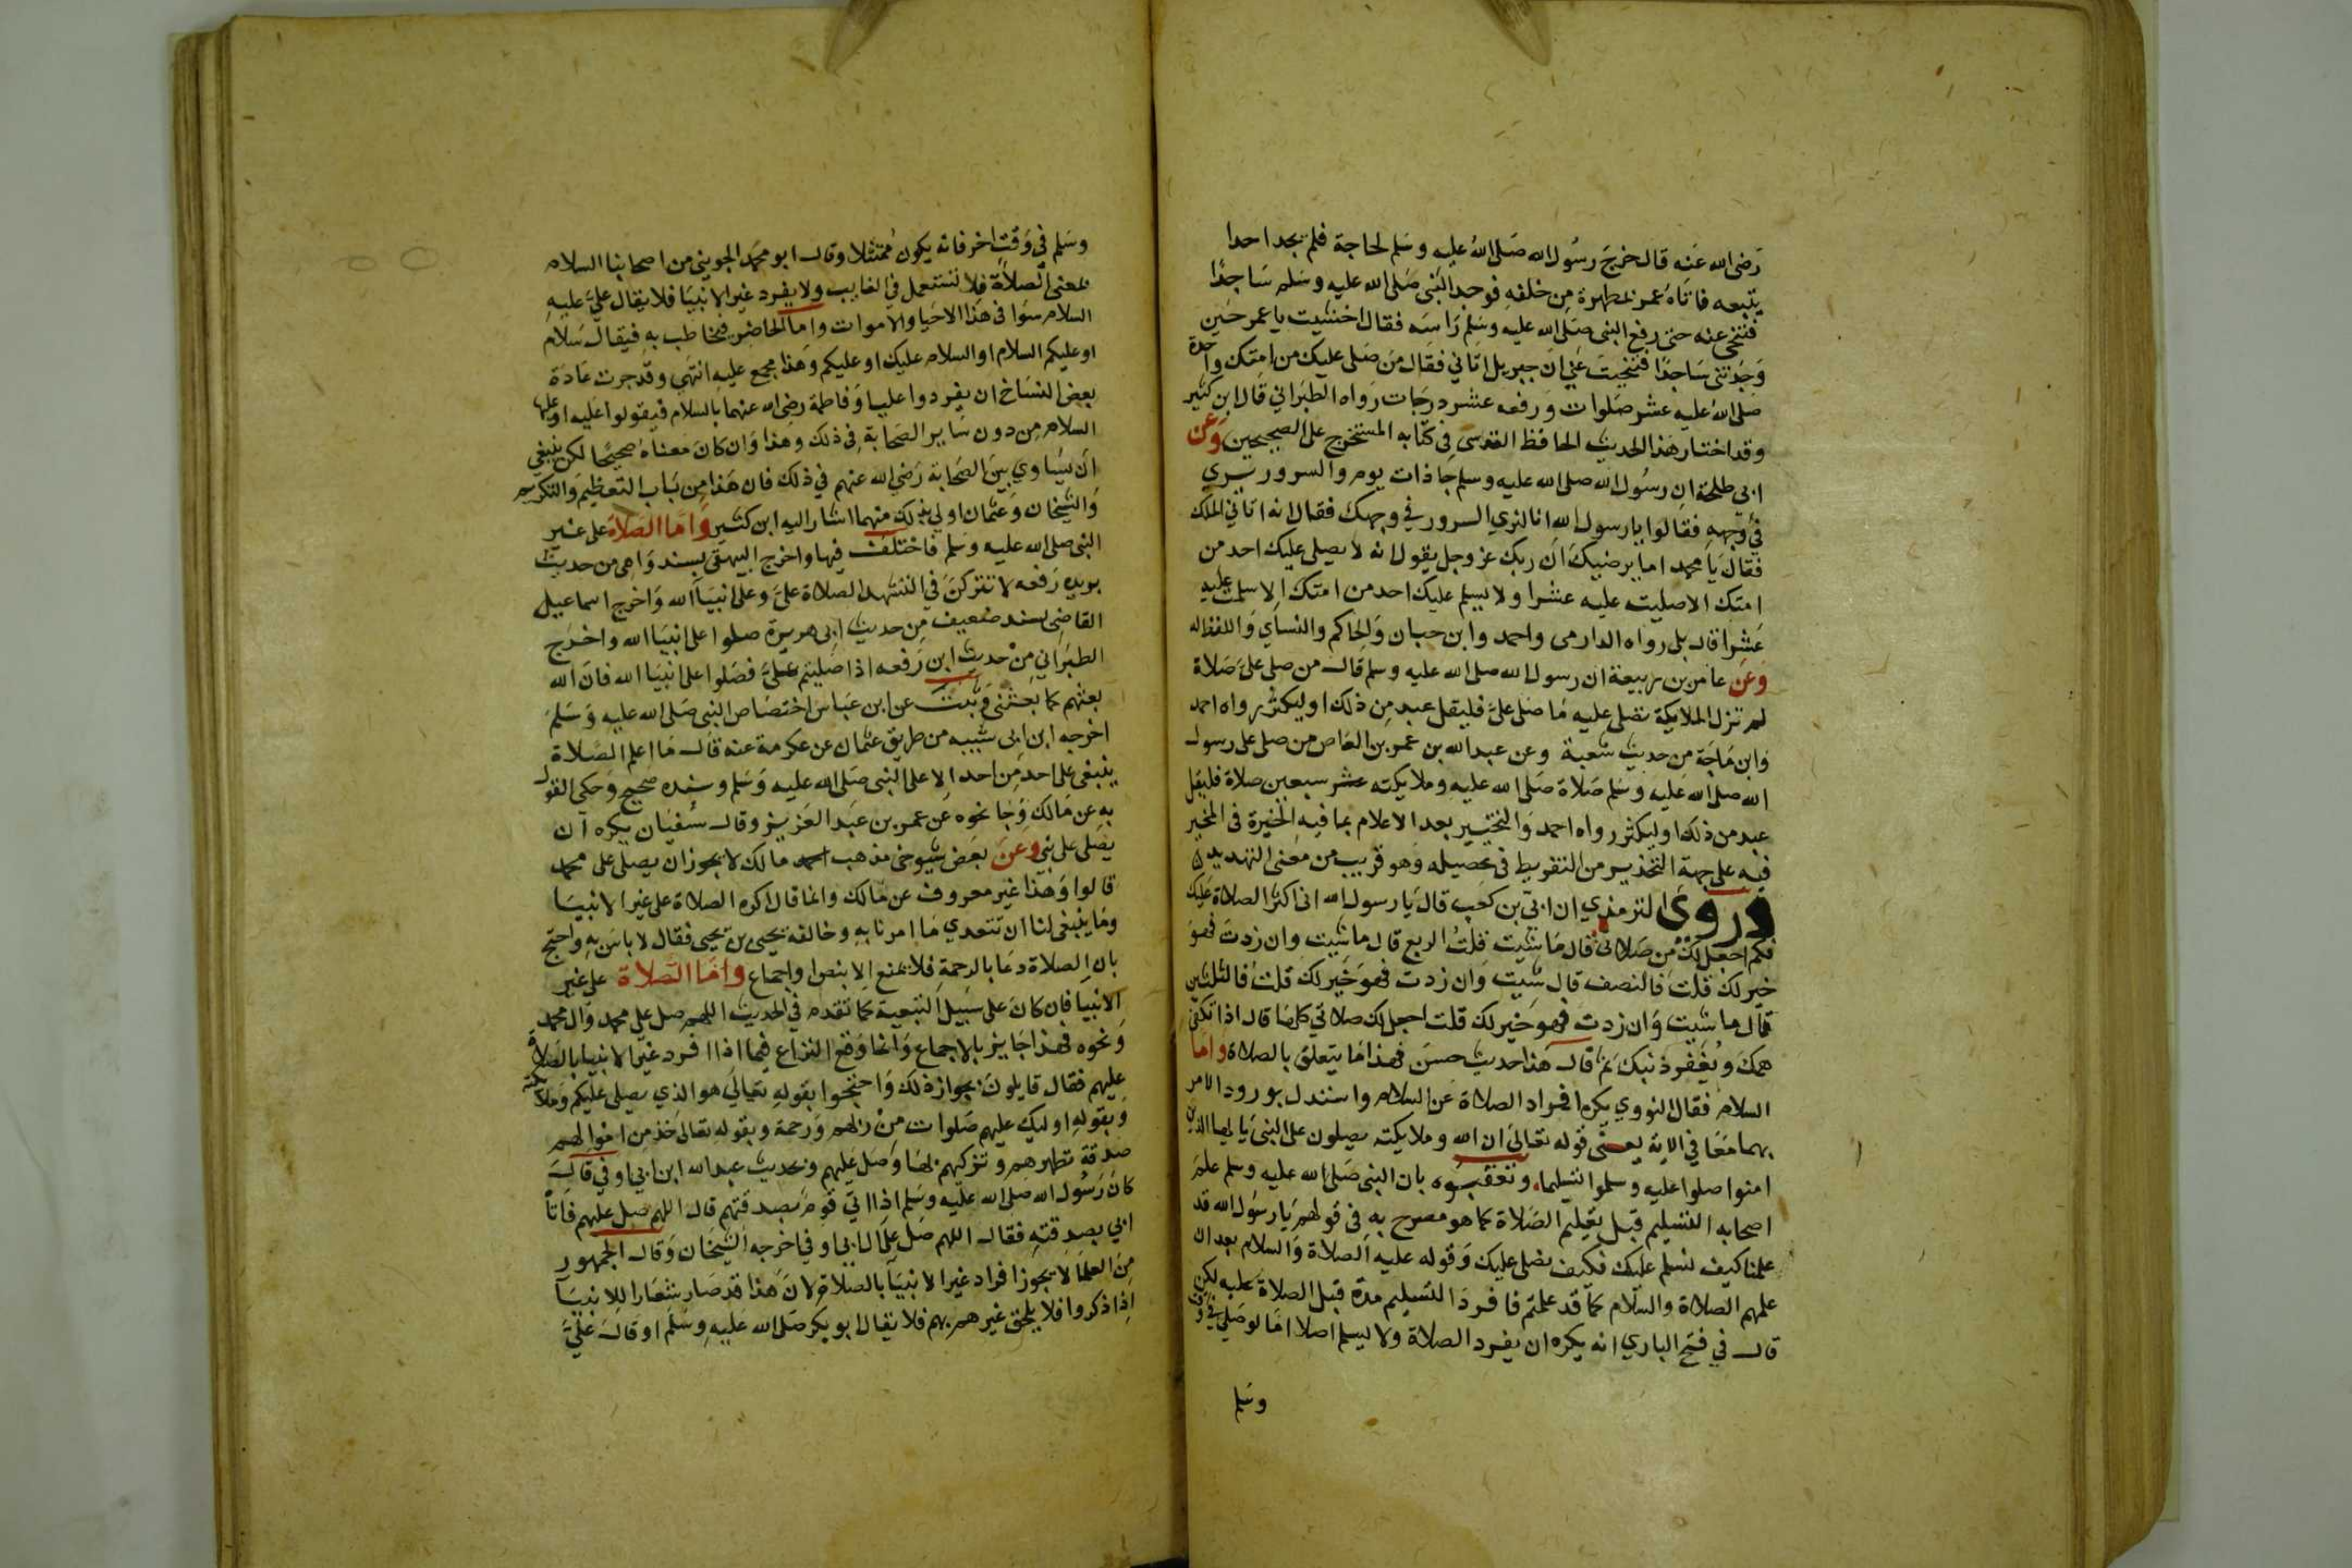 رضى الله عنه قال خرج رسول الله صلى الله عليه وسلم لحاجة فلم يجد احدا
يتبعه فاتاه عمر بمطهرة من خلفه فوجد النبى صلى الله عليه وسلم ساجدًا
فتنحى عنه حتى رفع النبى صلى الله عليه وسلم راسه فقال احسنت ياعمر حين
وجدتنى ساجدًا فتنحيت عني ان جبريل اتاني فقال من صلى عليك من امتك واحدة
صلى الله عليه عشر صلوات ورفعه عشر درجات رواه الطبراني قال ابن كثير
وقد اختار هذا الحديث الحافظ المقدسى فى كتابه المستخرج على الصحيحين وعن
ابي طلحة ان رسول الله صلى الله عليه وسلم جا ذات يوم والسرور يري
في وجهه فقالوا يا رسول الله انا لنري السرور في وجهك فقال انه اتاني الملك
فقال يا محمد اما يرضيك ان ربك عز وجل يقول انه لا يصلى عليك احد من
امتك الا صليت عليه عشرا ولا يسلم عليك احد من امتك الا سلمت عليه
عشرا قال بلى رواه الدارمى واحمد وابن حبان والحاكم والنساي واللفظ له
وعن عامر بن ربيعة ان رسول الله صلى الله عليه وسلم قال من صلى علىّ صلاة
لم تزل الملايكة تصلى عليه ما صلى علىّ فليقل عبد من ذلك او ليكثر رواه احمد
وابن ماجة من حديث شعبة وعن عبد الله بن عمرو بن العاص من صلى على رسول
الله صلى الله عليه وسلم صلاة صلى الله عليه وملايكته عشر سبعين صلاة فليقل
عبد من ذلك او ليكثر رواه احمد والتخيير بعد الاعلام بما فيه الخيرة فى المخير
فيه على جهة التحذير من التفريط فى تحصيله وهو قريب من معنى التهديد
وروى الترمذي ان ابىّ بن كعب قال يا رسول الله انى اكثر الصلاة عليك
فكم اجعل لك من صلاتى قال ما شيت قلت الربع قال ما شيت وان زدت فهو
خير لك قلت فالنصف قال شيت وان زدت فهو خير لك قلت فالثلثين
قال ما شيت وان زدت فهو خير لك قلت اجعل لك صلاتي كلها قال اذا تكفى
همك ويغفر ذنبك ثم قال هذا حديث حسن فهذا ما يتعلق بالصلاة واما
السلام فقال النووي يكره افراد الصلاة عن السلام واستدل بورود الامر
بهما معا في الاية يعنى قوله تعالى ان الله وملايكته يصلون على النبى يا ايها الذين
امنوا صلوا عليه وسلموا تسليما وتعقبوه بان النبى صلى الله عليه وسلم علم
اصحابه التسليم قبل تعليم الصلاة كما هو مصرح به فى قولهم يا رسول الله قد
علمنا كيف نسلم عليك فكيف نصلى عليك وقوله عليه الصلاة والسلام بعد ان
علمهم الصلاة والسلام كما قد علمتم فافرد التسليم مدة قبل الصلاة عليه لكن
قال في فتح الباري انه يكره ان يفرد الصلاة ولا يسلم اصلا اما لو صلى في وقت
وسلم
وسلم في وقت اخر فانه يكون ممتثلا وقال ابو محمد الجويني من اصحابنا السلام
بمعنى الصلاة فلا تستعمل في الغايب ولا يفرد غير الانبيا فلا يقال علىّ عليه
السلام سوا فى هذا الاحيا والاموات واما الحاضر فيخاطب به فيقال سلام
او عليكم السلام او السلام عليك او عليكم وهذا مجمع عليه انتهى وقد جرت عادة
بعض النساخ ان يفردوا عليا وفاطمة رضى الله عنهما بالسلام فيقولوا عليه او عليها
السلام من دون ساير الصحابة فى ذلك وهذا وان كان معناه صحيحًا لكن ينبغى
ان يساوي بين الصحابة رضي الله عنهم في ذلك فان هذا من باب التعظيم والتكريم
والشيخان وعثمان اولى بذلك منهما اشار اليه ابن كثير واما الصلاة على غير
النبى صلى الله عليه وسلم فاختلف فيها واخرج البيهقى بسند واهى من حديث
بريده رفعه لا تتركن في التشهد الصلاة علىّ وعلى انبيا الله واخرج اسماعيل
القاضى بسند ضعيف من حديث ابى هريرة صلوا على انبيا الله واخرج
الطبراني من حديث ابن رفعه اذا صليتم علىّ فصلوا على انبيا الله فان الله
بعثهم كما بعثنى وثبت عن ابن عباس اختصاص النبى صلى الله عليه وسلم
اخرجه ابن ابى شيبه من طريق عثمان عن عكرمة عنه قال ما اعلم الصلاة
ينبغى على احد من احد الا على النبى صلى الله عليه وسلم وسنده صحيح وحكى القول
به عن مالك وجا نحوه عن عمر بن عبد العزيز وقال سفيان يكره ان
يصلى على نبي وعن بعض شيوخى مذهب مالك لا يجوز ان يصلى على محمد
قالوا وهذا غير معروف عن مالك وانما قال اكره الصلاة على غير الانبيا
وما ينبغى لنا ان نتعدي ما امرنا به وخالفه يحيى بن يحيى فقال لا باس به واحتج
بان الصلاة دعا بالرحمة فلا تمنع الا بنص او اجماع واما الصلاة على غير
الانبيا فان كان على سبيل التبعية كما تقدم في الحديث اللهم صل على محمد وال محمد
ونحوه فهذا جايز بالاجماع وانما وقع النزاع فيما اذا افرد غير الانبيا بالصلاة
عليهم فقال قايلون بجواز ذلك واحتجوا بقوله تعالي هو الذي يصلى عليكم وملايكته
وبقوله اوليك عليهم صلوات من ربهم ورحمة وبقوله تعالى خذ من اموالهم
صدقة تطهرهم وتزكيهم بها وصل عليهم وبحديث عبد الله ابن ابي اوفي قال
كان رسول الله صلى الله عليه وسلم اذا اتى قوم بصدقتهم قال اللهم صل عليهم فاتا
ابي بصدقته فقال اللهم صل على ال ابى اوفي اخرجه الشيخان وقال الجمهور
من العلما لا يجوز افراد غير الانبيا بالصلاة لان هذا قد صار شعارا للانبيا
اذا ذكروا فلا يلحق غيرهم بهم فلا يقال ابو بكر صلى الله عليه وسلم او قال علىّ